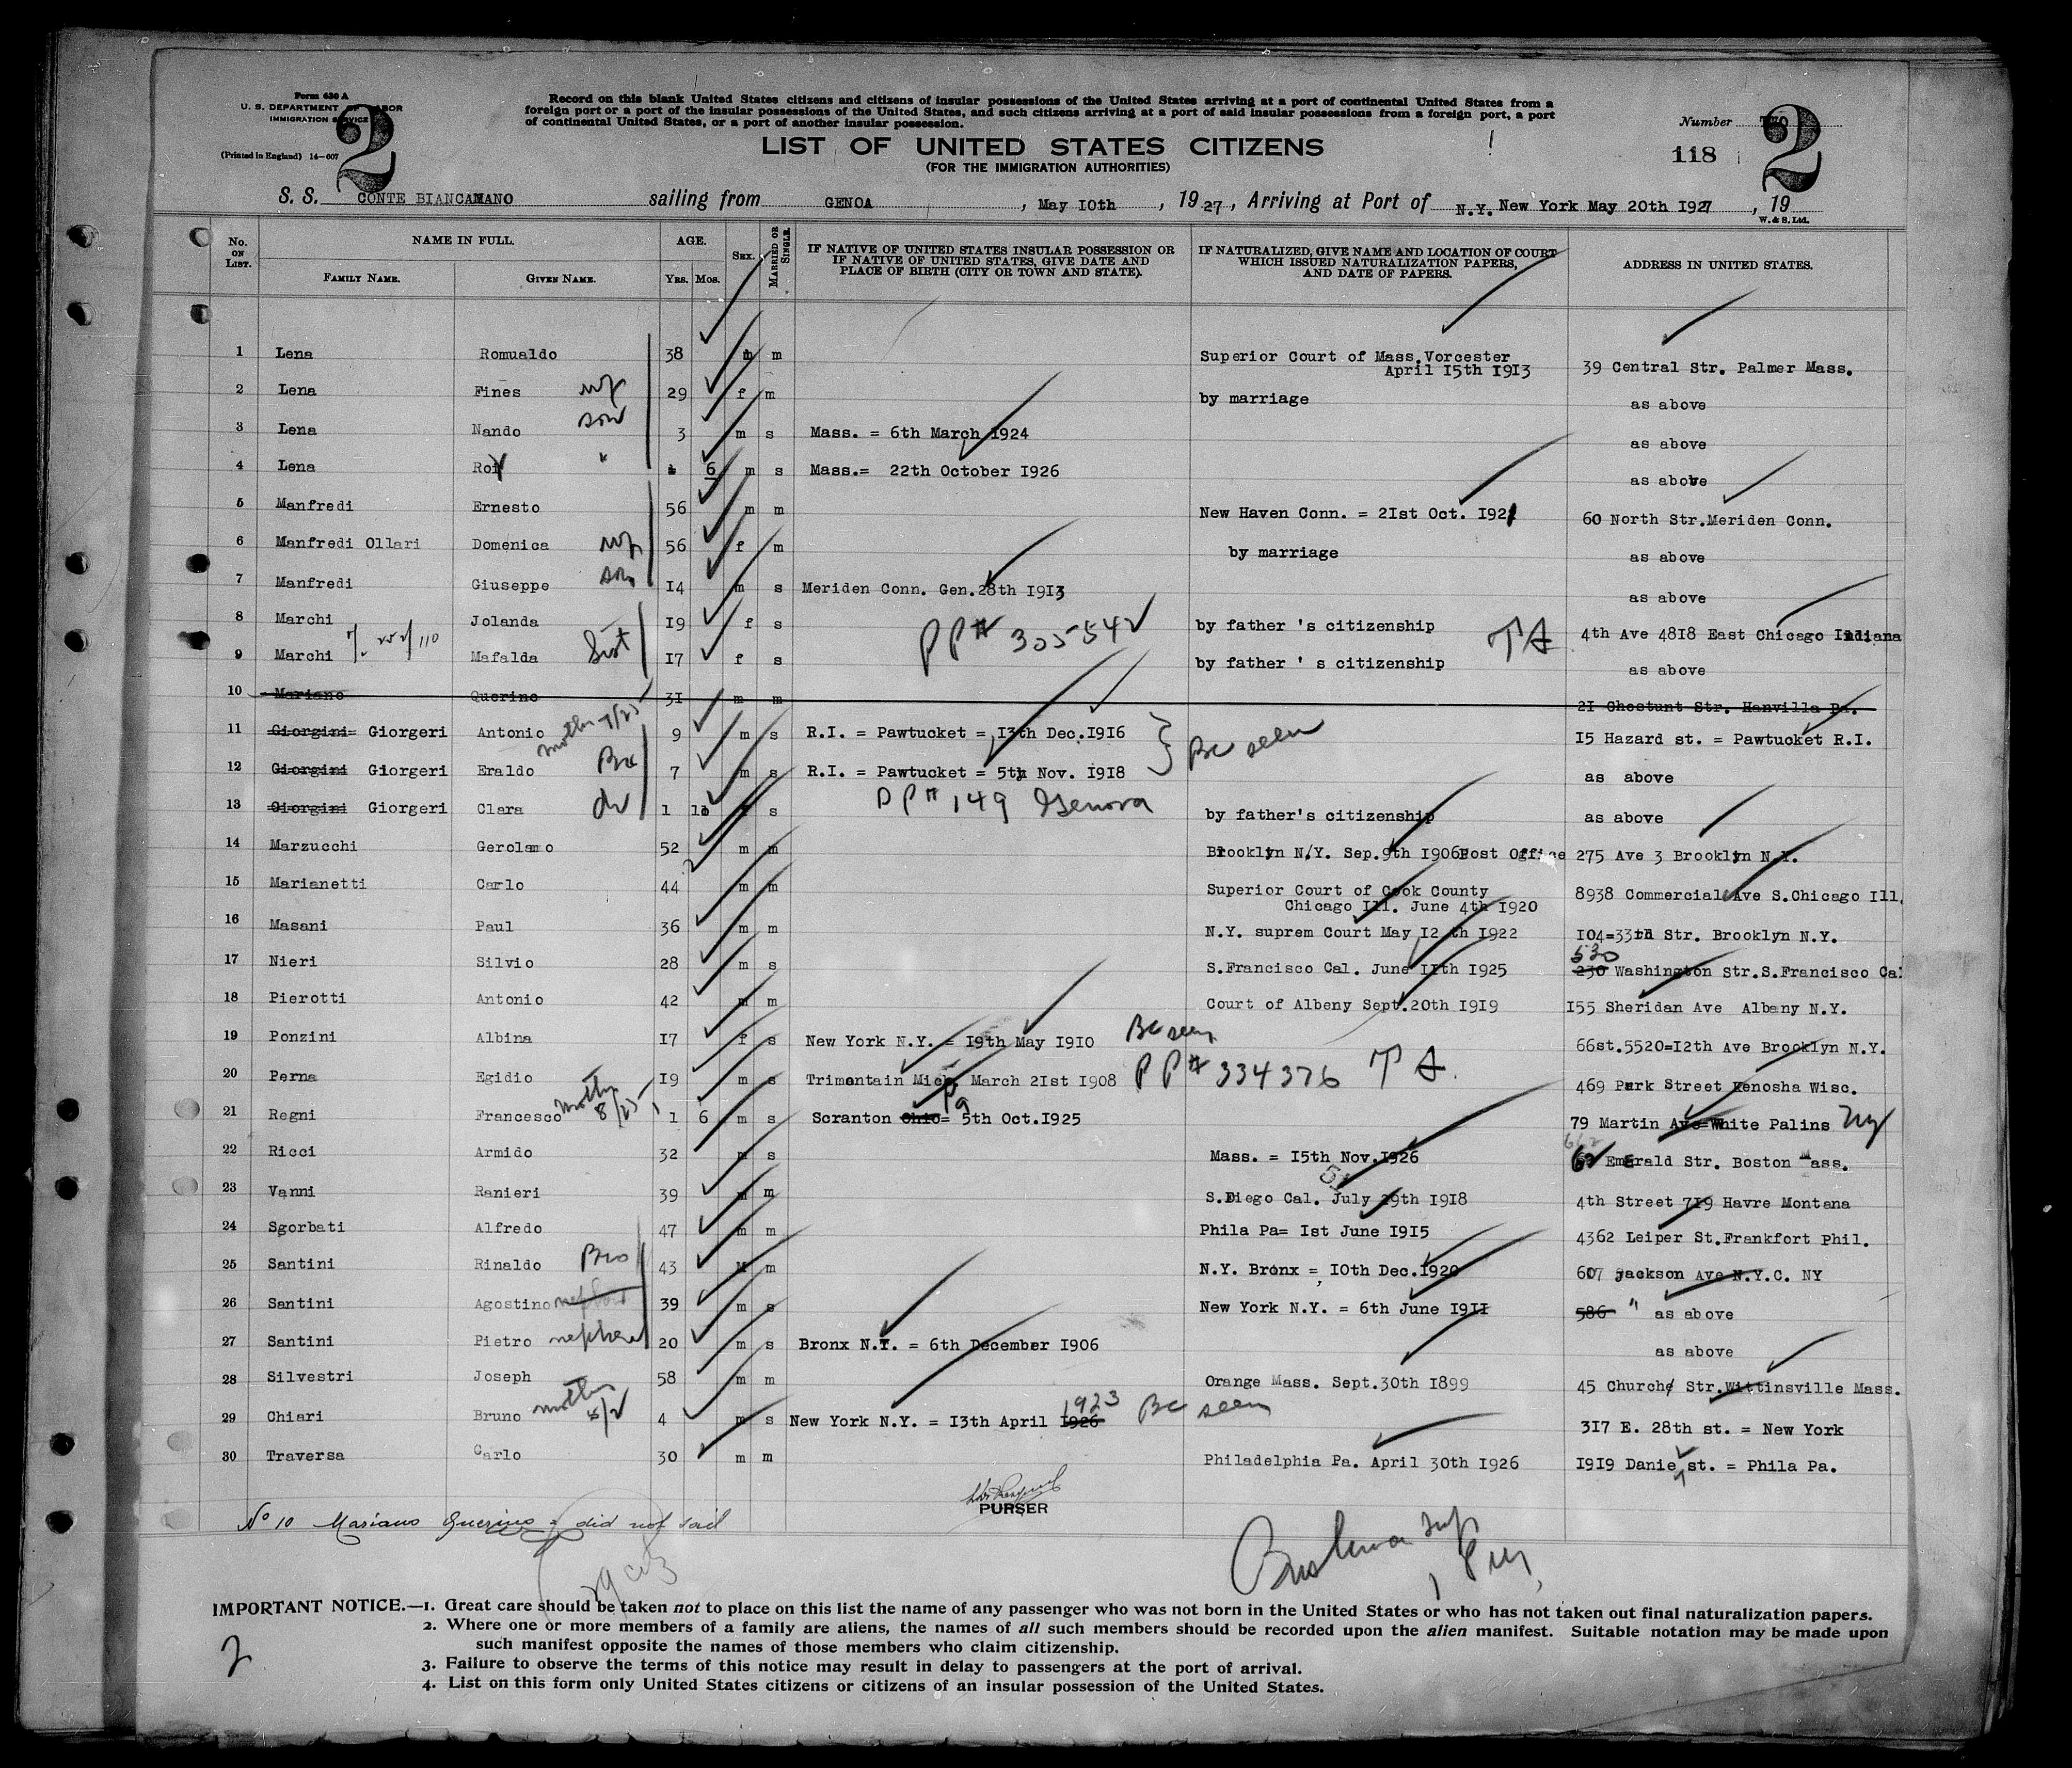 Form 630 A
U. S. DEPARTMENT OF LABOR
IMMIGRATION SERVICE
(Printed in England) 14—607
2
Record on this blank United States citizens and citizens of insular possessions of the United States arriving at a port of continental United States from a
foreign port or a port of the insular possessions of the United States, and such citizens arriving at a port of said insular possessions from a foreign port, a port
of continental United States, or a port of another insular possession.
LIST OF UNITED STATES CITIZENS
(FOR THE IMMIGRATION AUTHORITIES)
Number TWO
118
2
S. S. CONTE BIANCAMANO sailing from GENOA, May IOth, 1927, Arriving at Port of N.Y. New York May 20th 1927, 19
W. & S. Ltd.
No. ON LIST. NAME IN FULL. FAMILY NAME. GIVEN NAME. AGE. YRS. MOS. SEX. MARRIED OR SINGLE.
IF NATIVE OF UNITED STATES INSULAR POSSESSION OR
IF NATIVE OF UNITED STATES, GIVE DATE AND
PLACE OF BIRTH (CITY OR TOWN AND STATE).
IF NATURALIZED, GIVE NAME AND LOCATION OF COURT
WHICH ISSUED NATURALIZATION PAPERS,
AND DATE OF PAPERS.
ADDRESS IN UNITED STATES.
1 Lena Romualdo 38 m m Superior Court of Mass. Vorcester
April I5th I9I3 39 Central Str. Palmer Mass.
2 Lena Fines wf 29 f m by marriage as above
3 Lena Nando son 3 m s Mass. = 6th March I924 as above
4 Lena Roy " 6 m s Mass.= 22th October I926 as above
5 Manfredi Ernesto 56 m m New Haven Conn. = 2Ist Oct. I921 60 North Str.Meriden Conn.
6 Manfredi Ollari Domenica wf 56 f m by marriage as above
7 Manfredi Giuseppe son I4 m s Meriden Conn. Gen.28th I9I3 as above
8 Marchi Jolanda I9 f s by father 's citizenship 4th Ave 48I8 East Chicago Indiana
PP# 305542 TA
9 Marchi Mafalda Sist I7 f s by father ' s citizenship as above
10 Mariano Querino 3I m m 2I Chestunt Str. Hanvilla Pa.
11 Giorgini= Giorgeri Antonio 9 m s R.I. = Pawtucket = I3th Dec.I9I6 Bc seen I5 Hazard st. = Pawtucket R.I.
12 Giorgini Giorgeri Eraldo 7 m s R.I. = Pawtucket = 5th Nov. I9I8 as above
PP# 149 Genova
13 Giorgini Giorgeri Clara 1 s by father's citizenship as above
14 Marzucchi Gerolamo 52 m m Brooklyn N/Y. Sep.9th I906 Post Office 275 Ave 3 Brooklyn N.Y.
15 Marianetti Carlo 44 m m Superior Court of Cook County
Chicago Ill. June 4th I920 8938 Commercial Ave S.Chicago Ill.
16 Masani Paul 36 m m N.Y. suprem Court May I2 th I922 I04=33rd Str. Brooklyn N.Y.
530
17 Nieri Silvio 28 m s S.Francisco Cal. June IIth I925 230 Washington Str.S.Francisco Cal
18 Pierotti Antonio 42 m m Court of Albeny Sept.20th I9I9 I55 Sheridan Ave Albany N.Y.
19 Ponzini Albina I7 f s New York N.Y. = I9th May I9I0 Bc seen 66st.5520=I2th Ave Brooklyn N.Y.
20 Perna Egidio I9 m s Trimontain Mich. March 2Ist I908 PP# 334376 TA. 469 Park Street Kenosha Wisc.
21 Regni Francesco mother 8/25 1 6 m s Scranton Ohio= Pa 5th Oct.I925 79 Martin Ave=White Palins NY
22 Ricci Armido 32 m s Mass. = I5th Nov.I926 Emerald Str. Boston Mass.
23 Vanni Ranieri 39 m m S.Diego Cal. July 29th I9I8 4th Street 7I9 Havre Montana
24 Sgorbati Alfredo 47 m m Phila Pa= Ist June I9I5 4362 Leiper St.Frankfort Phil.
25 Santini Rinaldo Bro 43 M m N.Y. Bronx = IOth Dec.I920 607 jackson Ave N.Y.C. NY
26 Santini Agostino 39 m s New York N.Y. = 6th June I9II 586 " as above
27 Santini Pietro nephew 20 m s Bronx N.Y. = 6th December I906 as above
28 Silvestri Joseph 58 m m Orange Mass. Sept.30th I899 45 Church Str.Wittinsville Mass.
1923
29 Chiari Bruno mother 4 m s New York N.Y. = I3th April I926 Bc seen 3I7 E. 28th st. = New York
30 Traversa Carlo 30 m m Philadelphia Pa. April 30th I926 I9I9 Daniel st. = Phila Pa.
PURSER
No 10 Mariano Querino = did not sail
IMPORTANT NOTICE.—1. Great care should be taken not to place on this list the name of any passenger who was not born in the United States or who has not taken out final naturalization papers.
2. Where one or more members of a family are aliens, the names of all such members should be recorded upon the alien manifest. Suitable notation may be made upon
such manifest opposite the names of those members who claim citizenship.
3. Failure to observe the terms of this notice may result in delay to passengers at the port of arrival.
4. List on this form only United States citizens or citizens of an insular possession of the United States.
2